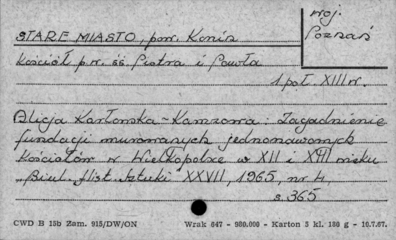 woj.
STARE MIASTO, pow. Konin
Poznań
Kościół p.w. śś. Piotra i Pawła
1 poł. XIII w.
Alicja Karłowska-Kamzowa: Zagadnienie
fundacji murowanych jednonawowych
kościołów w Wielkopolsce w XII i XIII wieku
„Biul. Hist. Sztuki XXVII, 1965, nr 4,
s. 365
CWD B 15b Zam. 915/DW/ON Wrak 647 - 980.000 - Karton 5 kl. 180 g - 10.7.67.